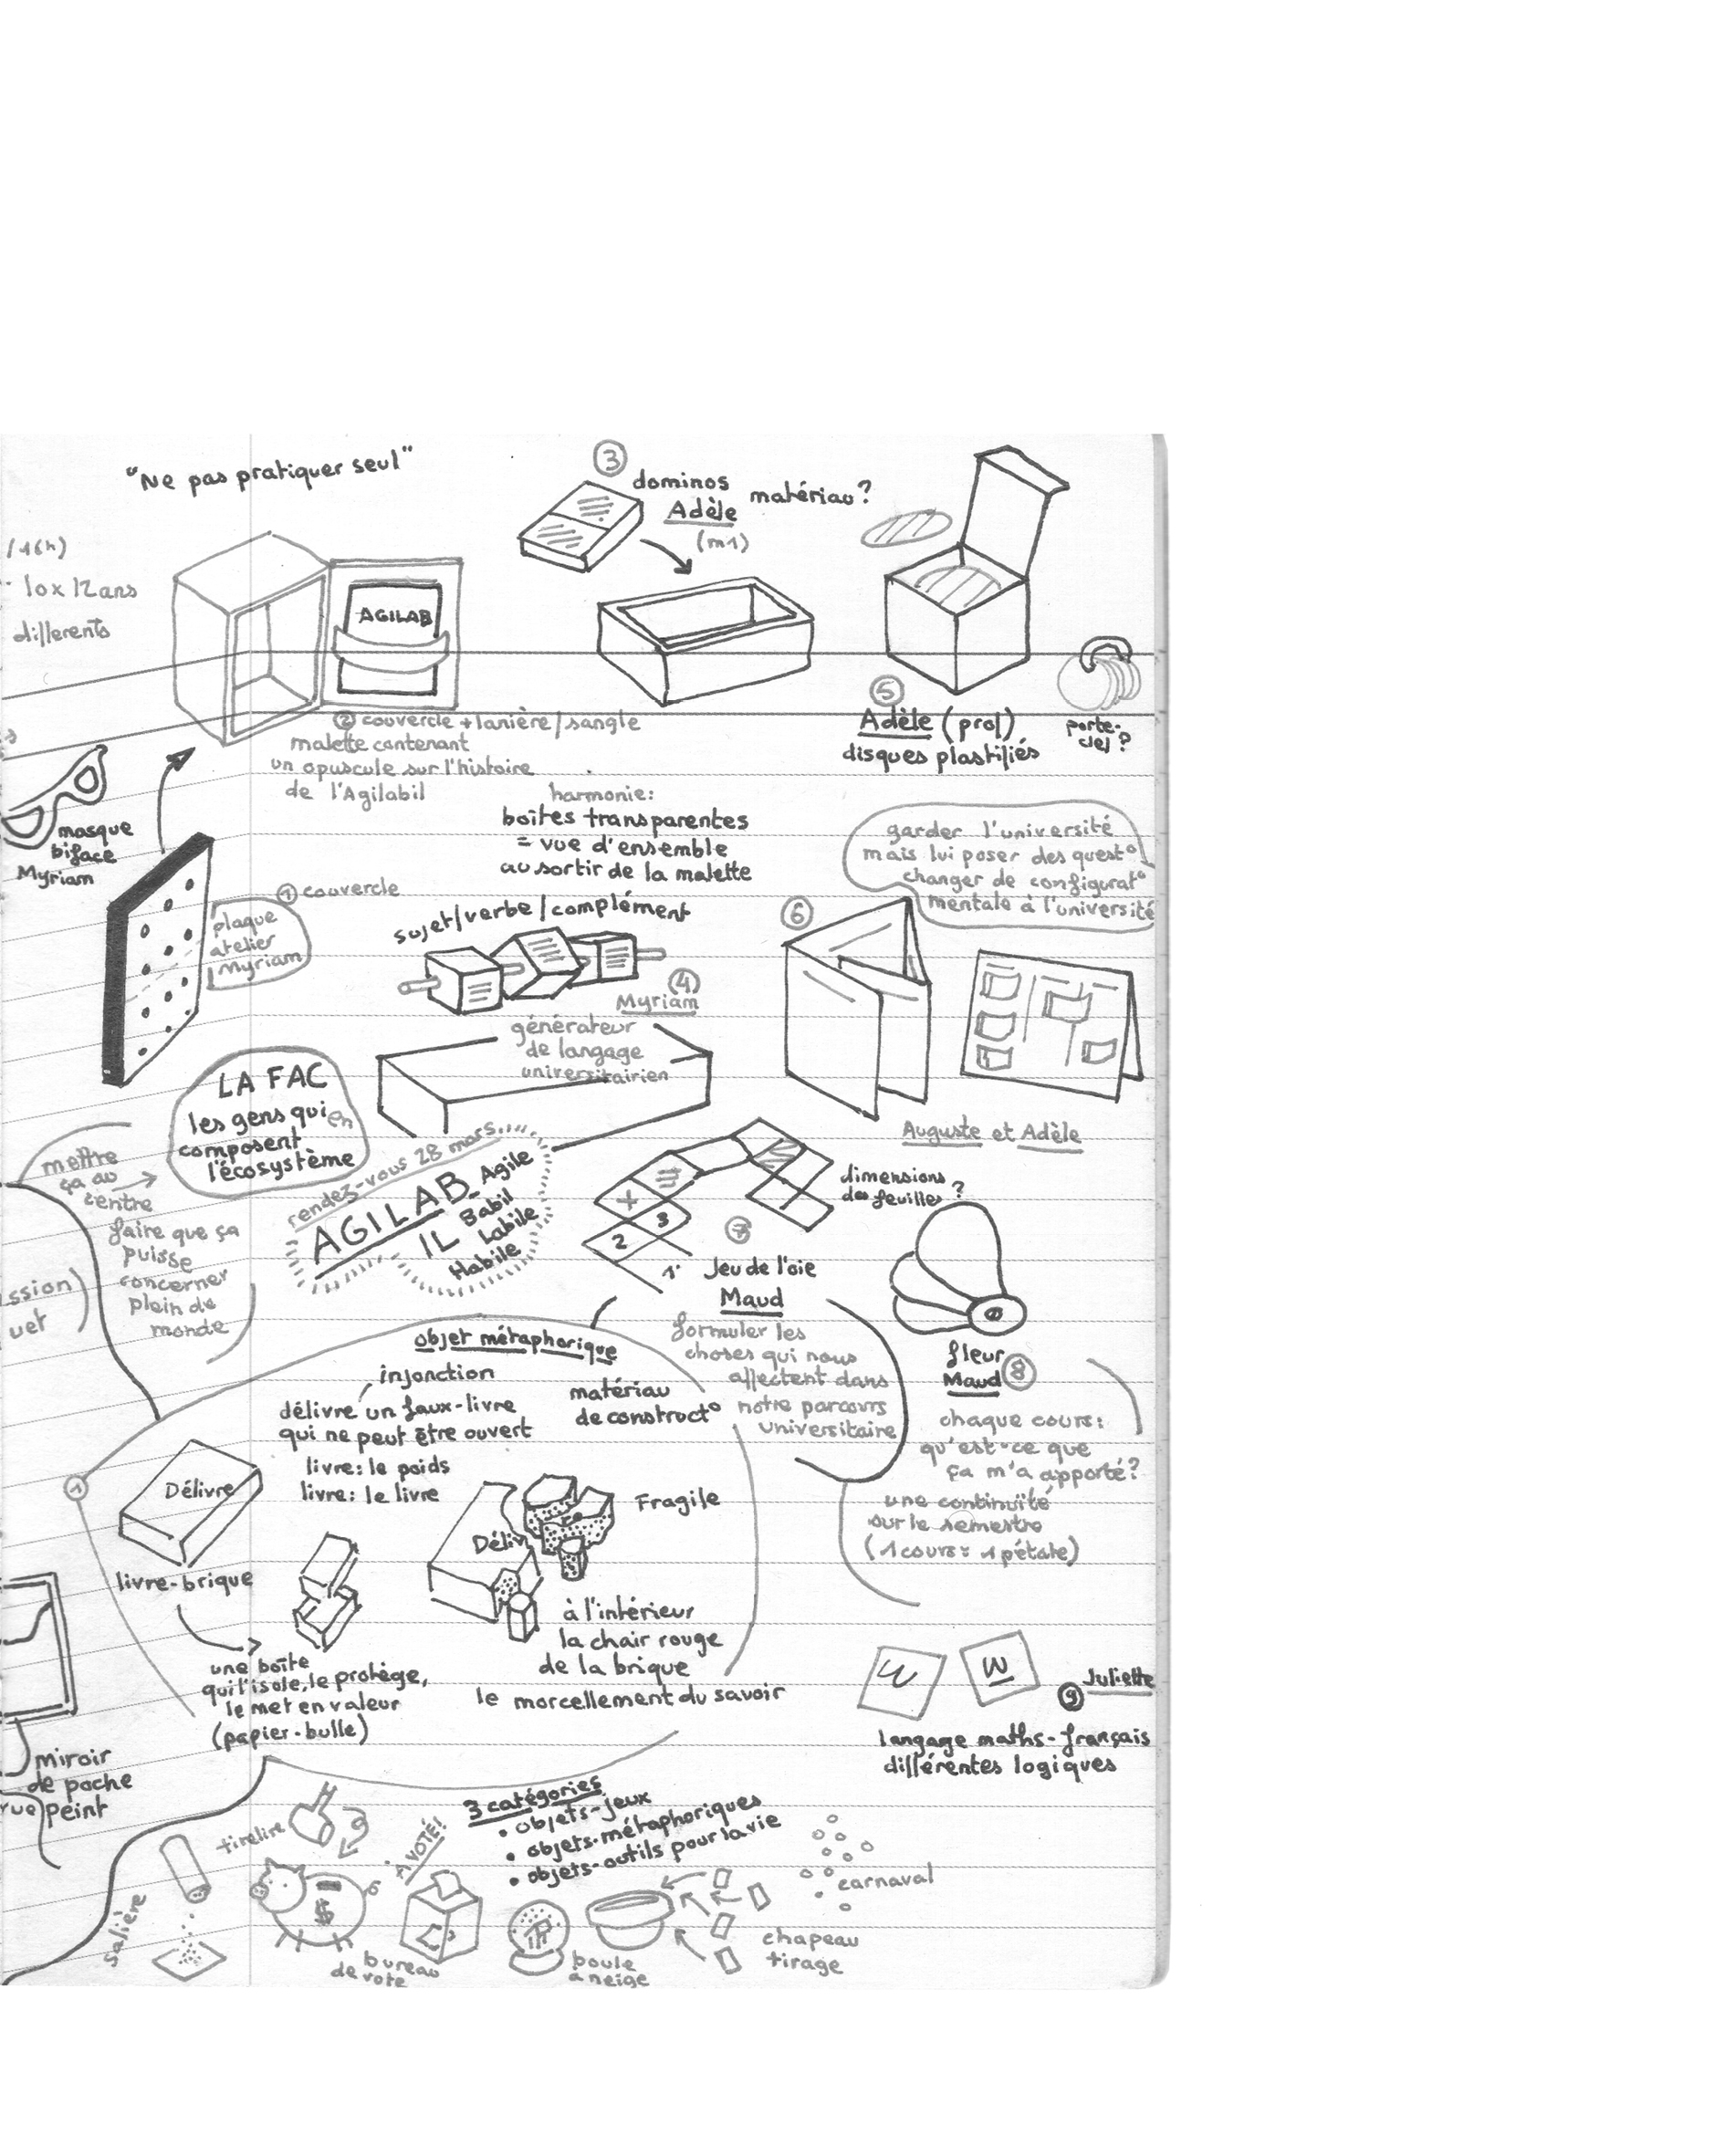 "Ne pas pratiquer seul"
/16h)
10x12ans
différents
③
dominos
Adèle
(m1)
matériau?
AGILAB
② couvercle + lanière/sangle
malette contenant
un opuscule sur l'histoire
de l'Agilabil
⑤
Adèle (prof)
disques plastifiés
porte-
clef?
masque
biface
Myriam
harmonie:
boîtes transparentes
= vue d'ensemble
au sortir de la malette
garder l'université
mais lui poser des quest°
changer de configurat°
mentale à l'université
① couvercle
plaque
atelier
Myriam
sujet/verbe/complément
④
Myriam
générateur
de langage
universitairien
⑥
Auguste et Adèle
LA FAC
les gens qui en
composent
l'écosystème
mettre
ça au
centre
faire que ça
puisse
concerner
plein de
monde
ssion)
uet
rendez-vous 28 mars
AGILAB
IL
Agile
Babil
Labile
Habile
dimensions
des feuilles?
+
3
2
1
⑦
Jeu de l'oie
Maud
formuler les
choses qui nous
affectent dans
notre parcours
universitaire
fleur
Maud ⑧
chaque cours:
qu'est-ce que
ça m'a apporté?
une continuité
sur le semestre
(1 cours = 1 pétale)
objet métaphorique
injonction
délivre un faux-livre
qui ne peut être ouvert
livre: le poids
livre: le livre
matériau
de construct°
①
Délivre
livre-brique
Déliv
Fragile
à l'intérieur
la chair rouge
de la brique
le morcellement du savoir
une boîte
qui l'isole, le protège,
le met en valeur
(papier-bulle)
⑨ Juliette
langage maths-français
différentes logiques
miroir
de poche
peint
3 catégories
• objets-jeux
• objets-métaphoriques
• objets-outils pour la vie
tirelire
A VOTÉ!
$
salière
bureau
de vote
boule
à neige
chapeau
tirage
carnaval